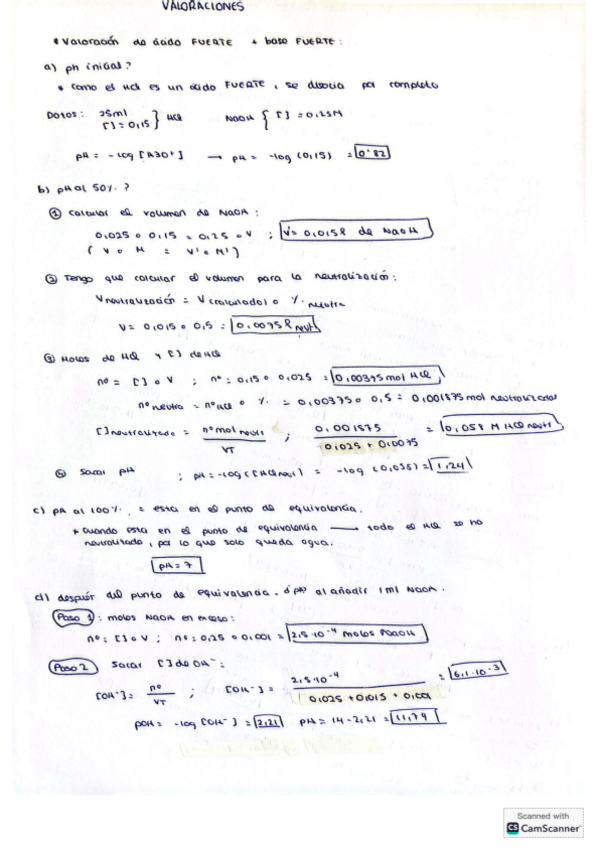 VALORACIONES
* Valoración de ácido FUERTE + base FUERTE:
a) pH inicial?
* Como el HCl es un ácido FUERTE, se disocia por completo
Datos: 25ml
[] = 0,15 } HCl NaOH { [] = 0,25M
pH = -log [H3O+] → pH = -log (0,15) = 0'82
b) pH al 50%?
① Calcular el volumen de NaOH:
0,025 · 0,15 = 0,25 · V ; V = 0,015l de NaOH
( V · M = V' · M' )
② Tengo que calcular el volumen para la neutralización:
Vneutralización = V calculado · % neutra
V = 0,015 · 0,5 = 0,0075l neut
③ Moles de HCl y [] de HCl
nº = [] · V ; nº = 0,15 · 0,025 = 0,00375 mol HCl
nº neutro = nº HCl · % = 0,00375 · 0,5 = 0,001875 mol neutralizados
[] neutralizado = nº mol neutr / VT ; 0,001875 / 0,025 + 0,0075 = 0,058 M HCl neutr
Sacar pH ; pH = -log ([HCl neut]) = -log (0,058) = 1,24
c) pH al 100%, = esta en el punto de equivalencia.
* Cuando esta en el punto de equivalencia → todo el HCl se ha
neutralizado, por lo que solo queda agua.
pH = 7
d) después del punto de equivalencia. ¿pH al añadir 1ml NaOH.
Paso 1: moles NaOH en exceso:
nº = [] · V ; nº = 0,25 · 0,001 = 2,5·10⁻⁴ moles NaOH
Paso 2 Sacar [] de OH⁻:
[OH⁻] = nº / VT ; [OH⁻] = 2,5·10⁻⁴ / 0,025 + 0,015 + 0,001 = 6,1·10⁻³
pOH = -log [OH⁻] = 2,21 pH = 14 - 2,21 = 11,79
Scanned with
CS CamScanner